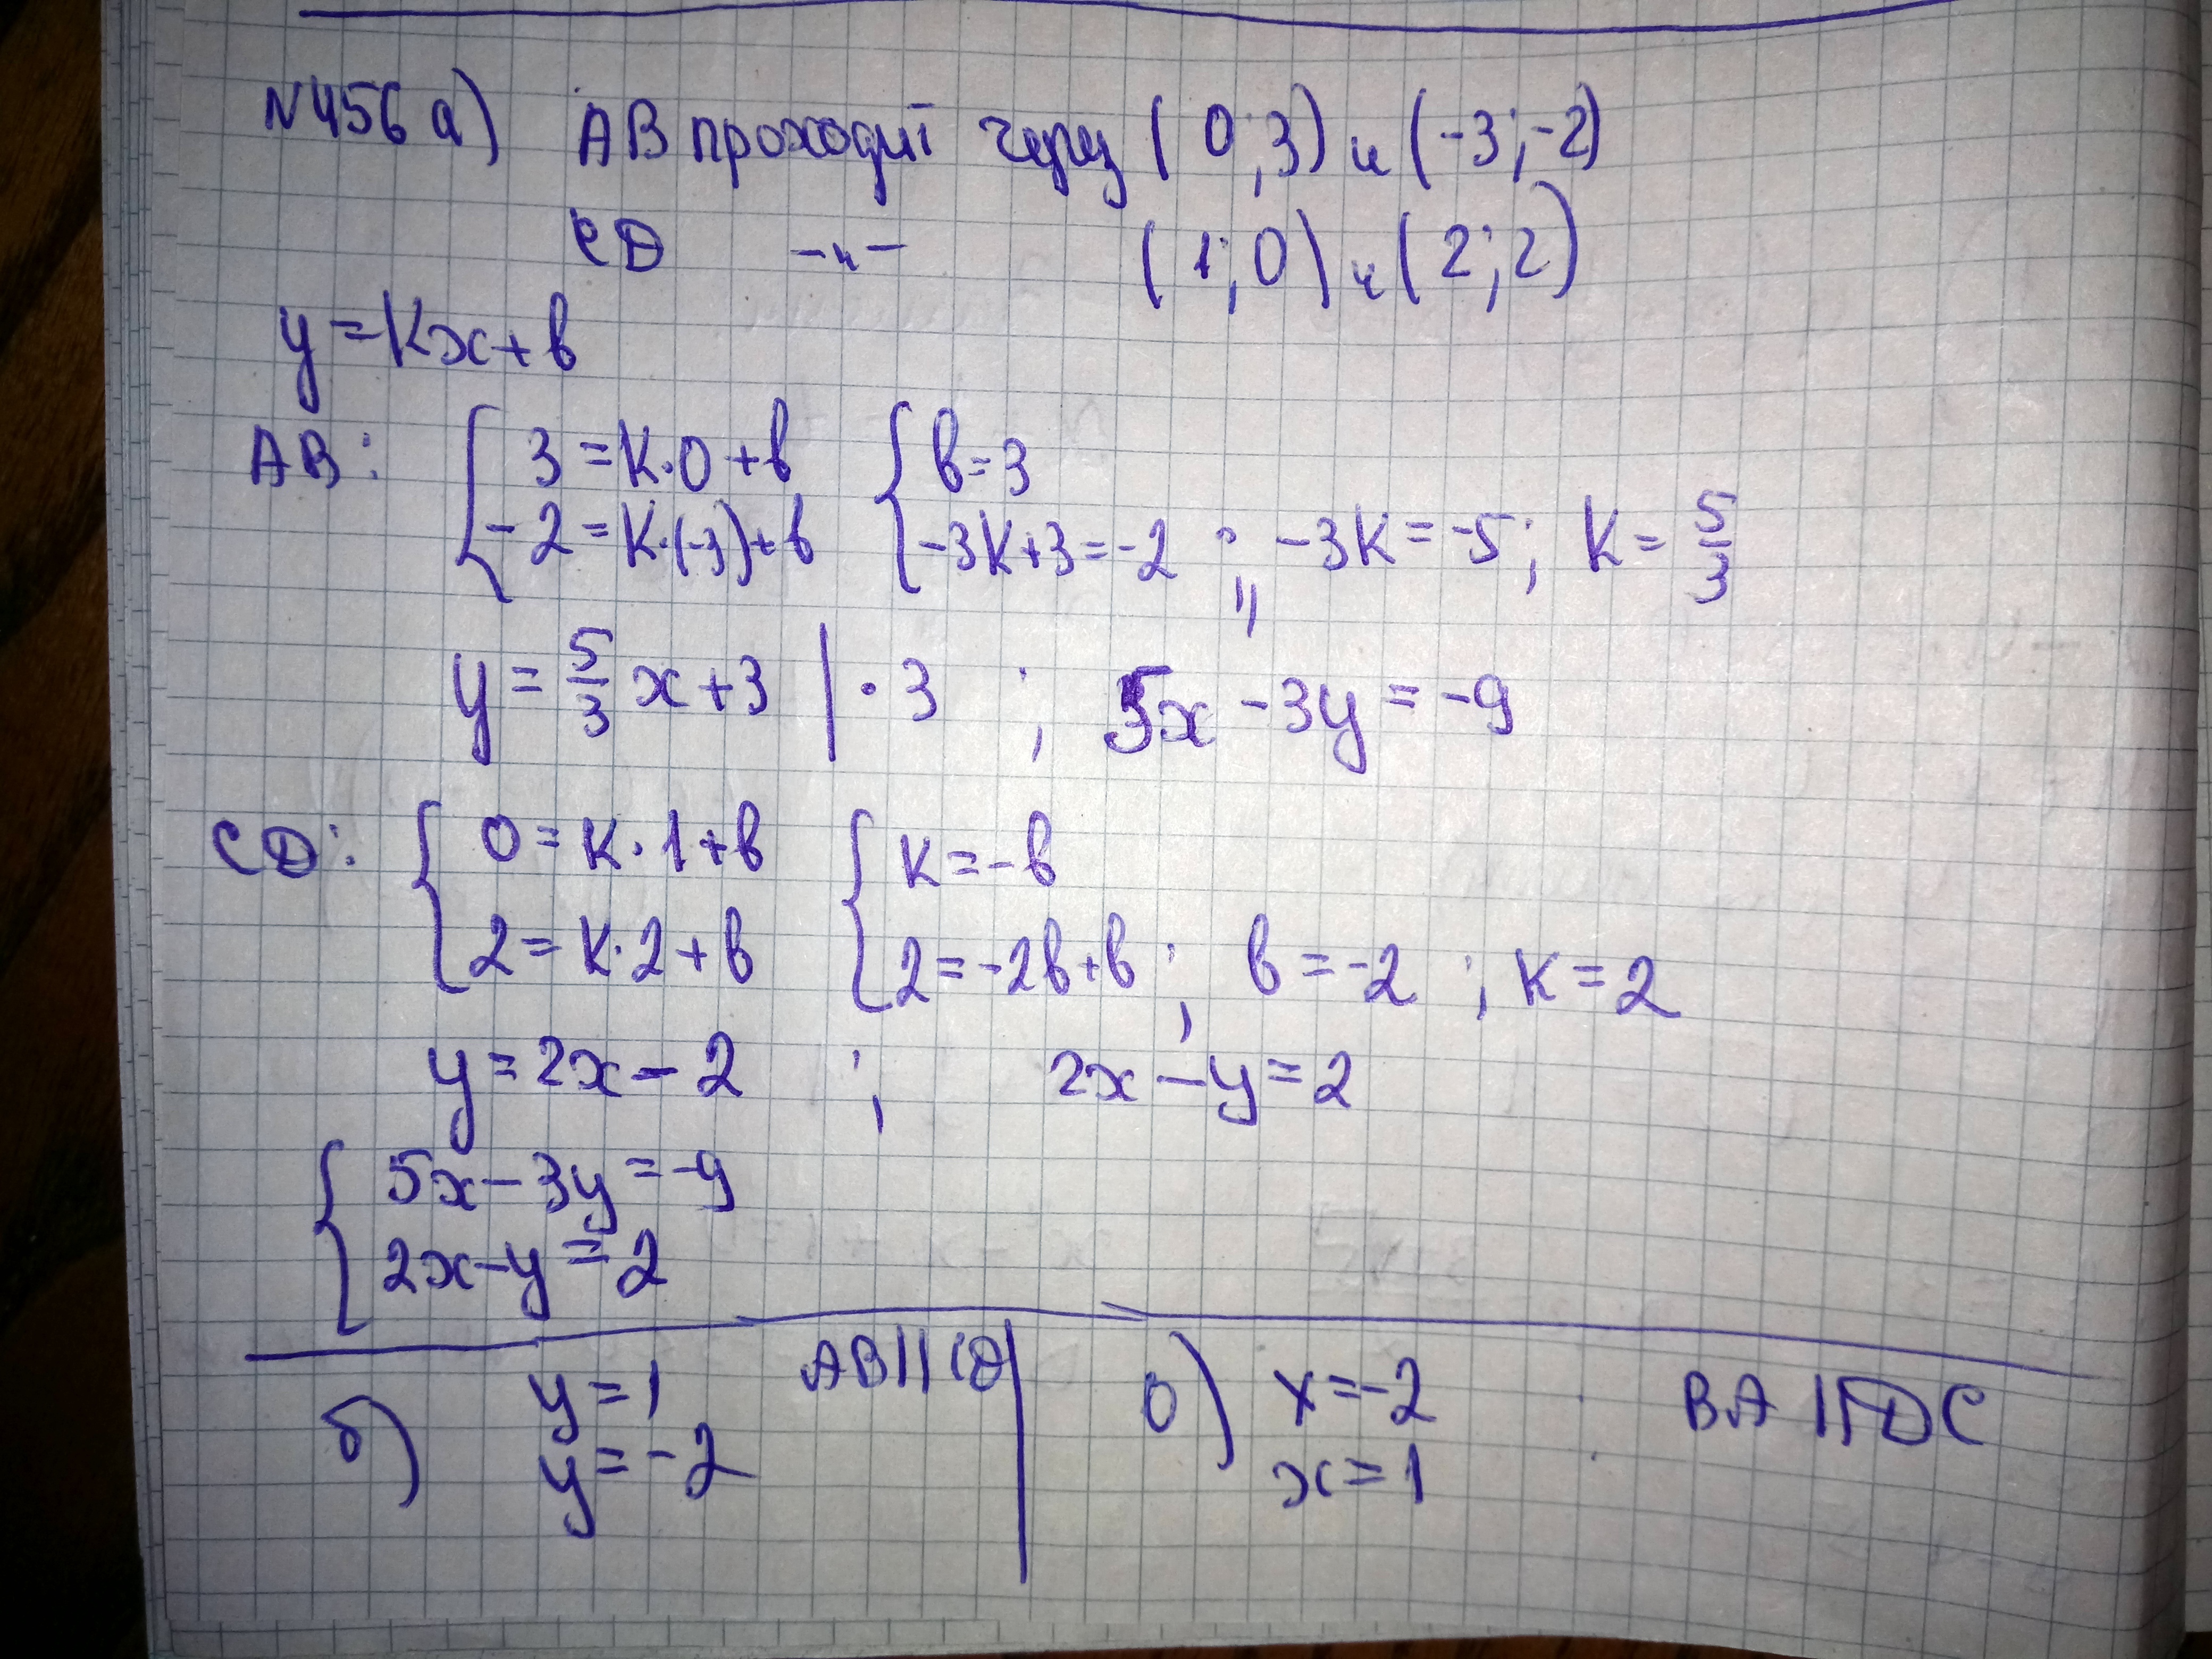 N456 а) АВ проходит через (0;3) и (-3;-2)
CD -"- (1;0) и (2;2)
y=kx+b
AB: { 3=k·0+b { b=3
-2=k·(-3)+b -3k+3=-2 ; -3k=-5; k=5/3
y=5/3x+3 | ·3 ; 5x-3y=-9
CD: { 0=k·1+b { k=-b
2=k·2+b 2=-2b+b; b=-2 ; k=2
y=2x-2 ; 2x-y=2
{ 5x-3y=-9
2x-y=2
б) y=1 AB||CD
y=-2
0) x=-2 BA||DC
x=1